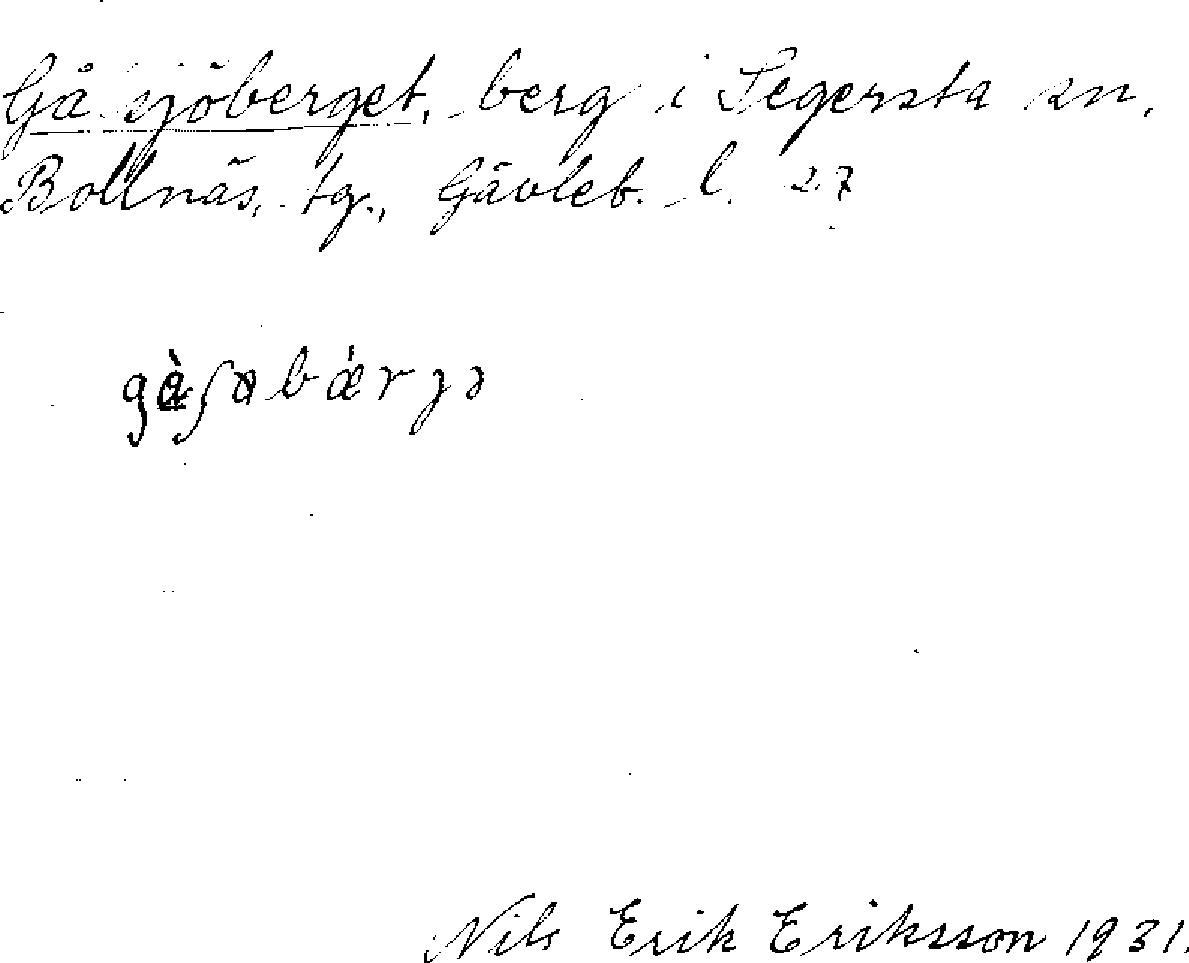 Gåsjöberget, berg i Segersta sn,
Bollnäs, tg., Gävleb. l. 27
Nils Erik Eriksson 1931.